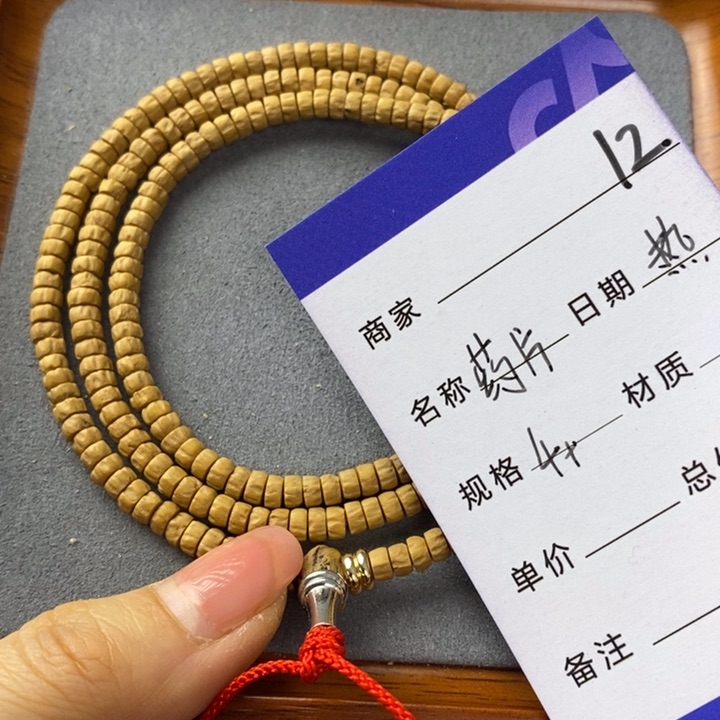 12.
商家
日期 热
名称 药片
材质
规格 4+
总
单价
备注